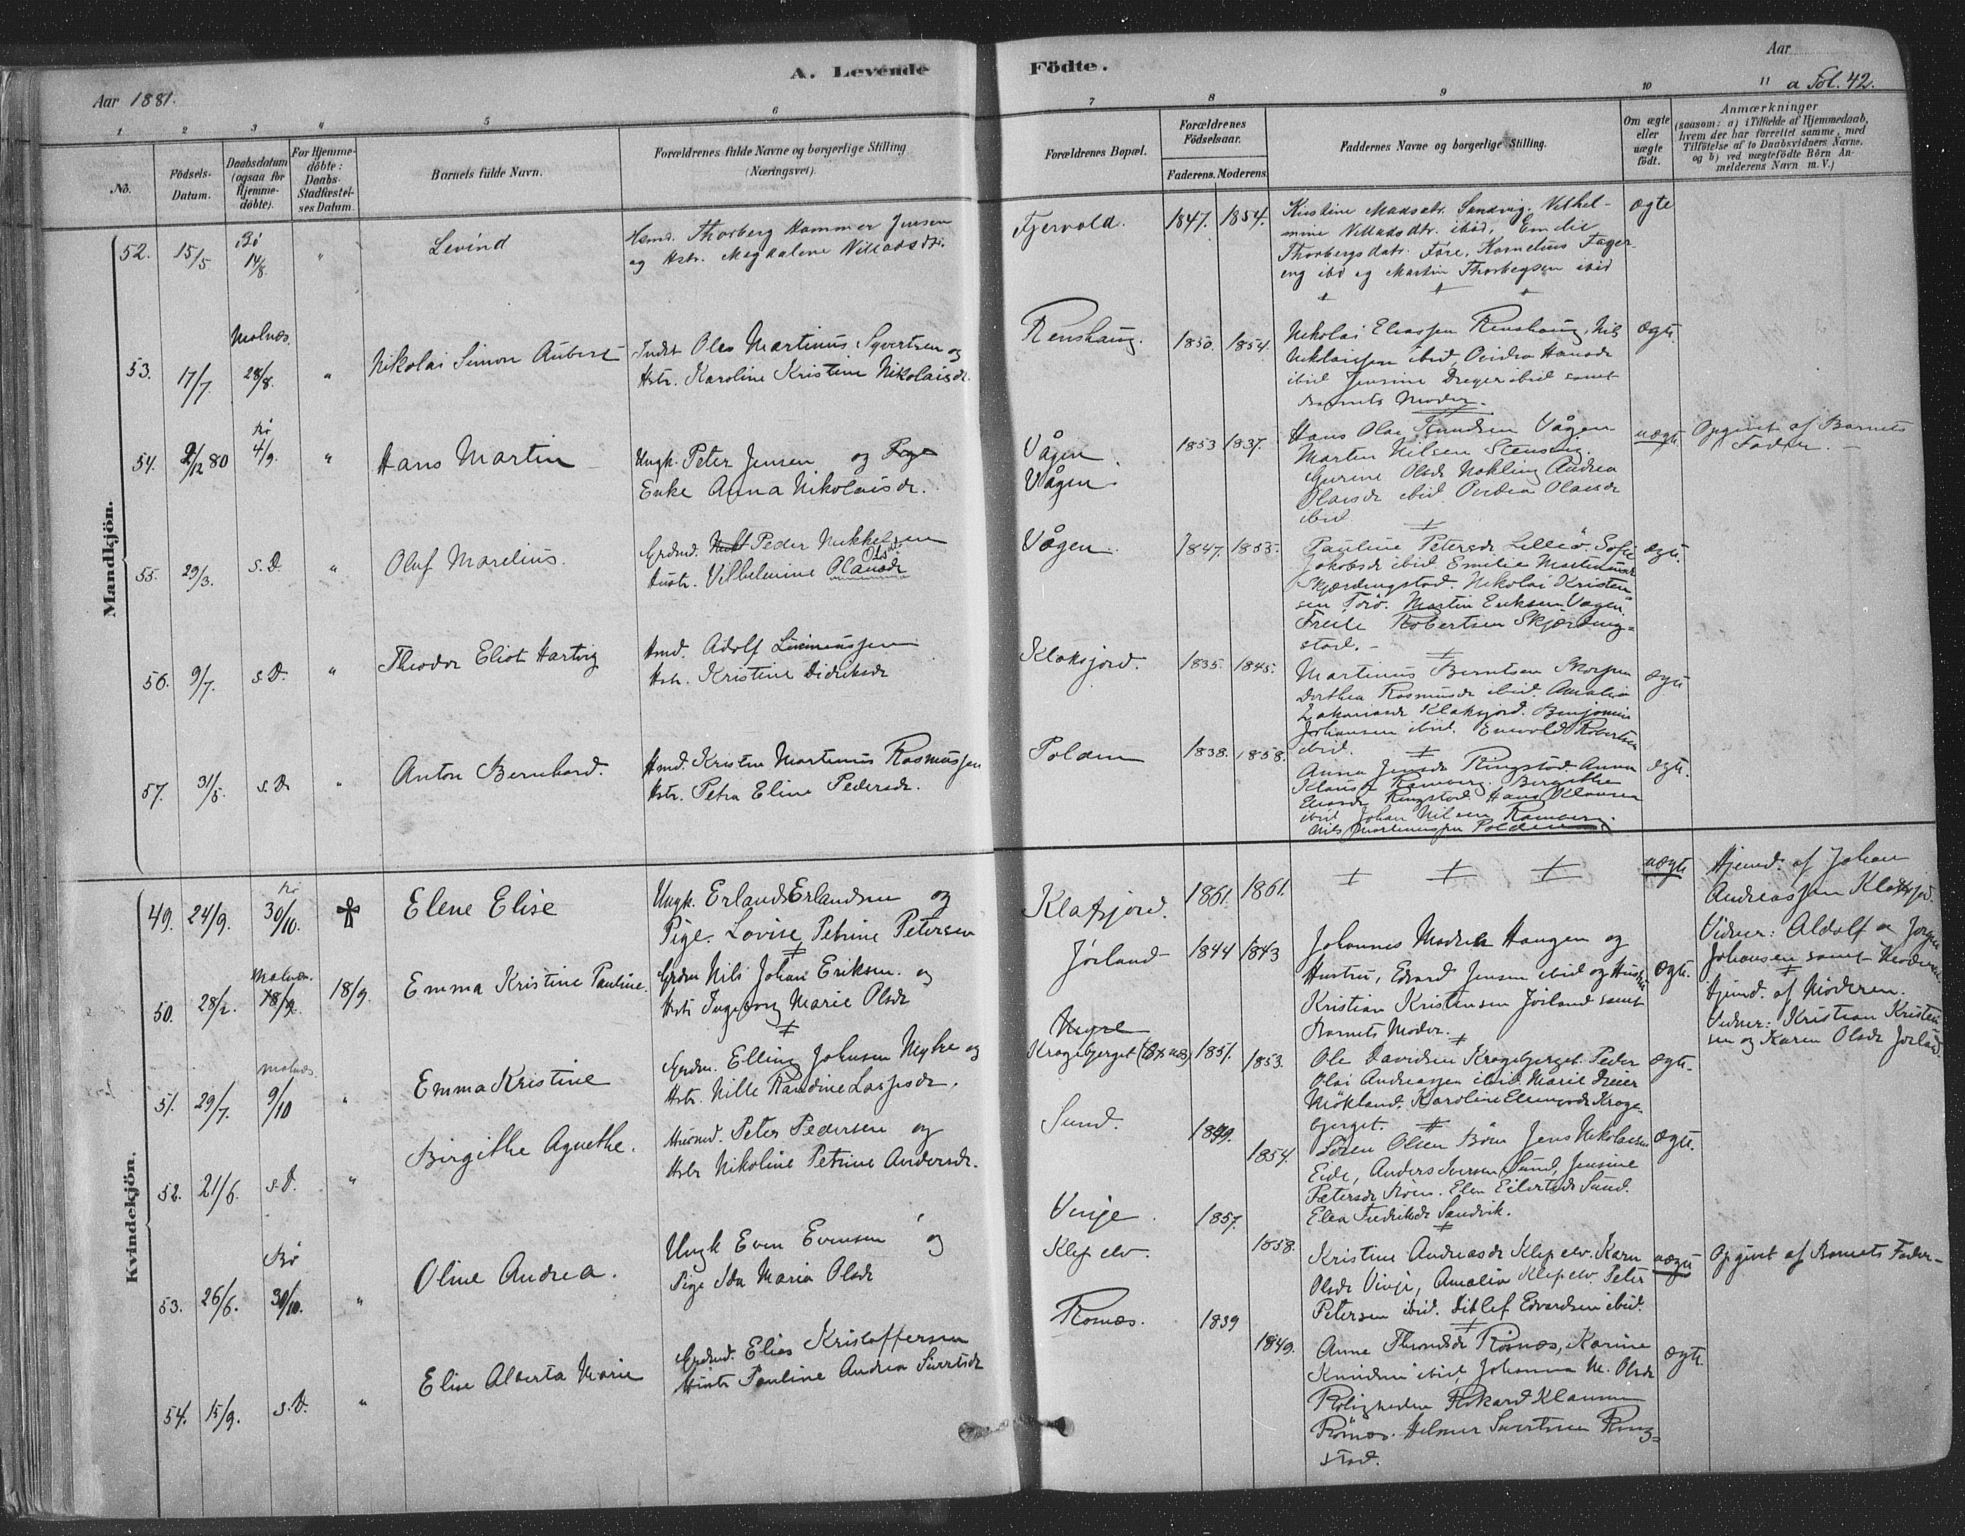 A. Levende Födte.
Aar 1881.
Aar
a Fol. 42.
1 2 3 4 5 6 7 8 9 10 11
No.
Födsels-Datum.
Daabsdatum (ogsaa for Hjemmedöbte).
For Hjemmedöbte: Daabs-Stadfæstelses Datum.
Barnets fulde Navn.
Forældrenes fulde Navne og borgerlige Stilling (Næringsvei).
Forældrenes Bopæl.
Forældrenes Födselsaar.
Faderens. Moderens.
Faddernes Navne og borgerlige Stilling.
Om ægte eller uægte födt.
Anmærkninger (saasom: a) i Tilfælde af Hjemmedaab, hvem der har forrettet samme, med Tilföielse af to Daabsvidners Navne, og b) ved uægtefödte Börn Anmelderens Navn m. V.)
Mandkjön.
52. 15/5 Bö 14/8. " Levind
Hsmd. Thorberg Hammer Jensen
og Hstr. Magdalene Villadsdtr.
Fjervold. 1847. 1854.
Kristine Madsdtr. Sandvig. Vilhel-
mine Villadsdtr. ibid, Emilie
Thorbergsdatr. Före, Kornelius Fager-
eng ibd og Martin Thorbergsen ibid
ægte
53. 17/7. Malnæs. 28/8. " Nikolai Simon Aubert
Indst Oles Martinus Syvertsen og
Hstr. Karoline Kristine Nikolaisdr.
Renshaug. 1850. 1854.
Nikolai Eliassen Renshaug, Nils
Niklaissen ibid, Ovidia Hansdr
ibid Jensine Dreyer ibid samt
Barnets Moder.
ægte.
54. 2/12 80 Bö 4/9. " Hans Martin
Ungk. Peter Jensen og Pige
Enke Anna Nikolaisdr.
Vågen
Vågen. 1853 1837.
Hans Olai Knudsen Vågen
Martin Nilsen Stensing.
Gurine Olsdr Mökling Andrea
Olaisdr ibid Ovidia Olaisdr
ibid
uægte
Opgivet af Barnets
Fader. -
55. 29/3. s.D. " Oluf Marelius.
Grdmd. Peder Mikkelsen
Hustr. Vilhelmine Olsdr
Vågen. 1847. 1853.
Pauline Petersdr Lilleö. Sofie
Jakobsdr ibid Emilie Martinusdr
Skjærdingstad. Nikolai Kristen-
sen Törö. Martin Eriksen Vågen.
Robertsen Skjærding-
stad. -
ægte.
56. 9/7. s.D. " Theodor Eliot Hartvig
Hmd. Adolf
Hstr. Kristine Didriksdr
Klaksjord. 1835. 1845.
Martinus Berntsen
Dorthea Rasmusdr ibid. Amalia
Zakariasdr Klaksjord. Benjamin
Johansen ibid. Enevold Robertsen
ibid.
ægte
57. 31/5. s.D. " Anton Bernhard.
Hmd. Kristen Martinus Rasmussen
Hstr. Petra Eline Pedersdr.
Polden 1838. 1858.
Anna Jensdr Ringstad. Anna
Klausdr Ramberg. Birgithe
Eliasdr Ringstad. Hans Klausen
ibid Johan Nilsen Ramberg.
Nils Martinussen Polden
ægte.
Kvindekjön.
49. 24/9. Bö 30/10. Elene Elise
Ungk. Erland Erlandsen og
Pige. Lovise Petrine Petersen
Klaksjord. 1861. 1861.
uægte
Hjemd. af Johan
Andreassen Klaksjd.
Vidner: Aldolf a Jörgen
Johansen samt Moderen
50. 28/2. Malnæs. 18/9. 18/9. Emma Kristine Pauline.
Grdm Nils Johan Eriksen. og
Hstr Ingeborg Marie Olsdr
Jörland 1844 1843
Johannes Madsen Haugen og
Hustru, Edvard Jensen ibid og Hustru
Kristian Kristensen Jörland samt
Barnets Moder.
ægte.
Hjemd. af Moderen.
Vidner: Kristian Kristen-
sen og Karen Olsdr Jörland
51. 29/7. Malnæs. 9/10 " Emma Kristine
Grdm. Elling Johnsen Myhre og
Hstr. Nille Randine Larsdr.
Myre
Kragebjerget 1851. 1853.
Ole Davidsen Kragebjerget. Peder
Olai Andreassen ibid. Marie Dreier
Mökland. Karoline Krage-
bjerget.
ægte.
52. 21/6. s.D. " Birgithe Agnethe.
Husmd. Peter Pedersen og
Hstr Nikoline Petrine Andersdr.
Sund. 1849. 1854.
Sören Olsen Böen Jens Nikolaisen
Eide, Anders Iversen Sund, Jensine
Petersdr Böen. Elen Eilertsdr Sund.
Elea Fredriksdr Sandvik.
ægte.
53. 26/6. Bö 30/10. " Oline Andrea.
Ungk Even Evensen og
Pige Ida Maria Olsdr
Vinje. 1857.
Klepelv. 1858.
Kristine Andreasdr Klepelv. Karn
Olsdr Vinje, Amalia Klepelv. Peter
Petersen ibid. Ditlef Edvardsen ibid.
uægte
Opgivet af Barnets Fader-
54. 15/9. s.D. " Elise Alberta Marie
Grdmd. Elias Kristoffersen
Hustr Pauline Andrea Sivertsdr
Römæs. 1839 1849.
Anne Römæs, Karine
Knudsen ibid, Johanna M. Olsdr
Roligheden Rikard Klausen
Römæs. Helmer Sivertsen Ring-
stad.
ægte.